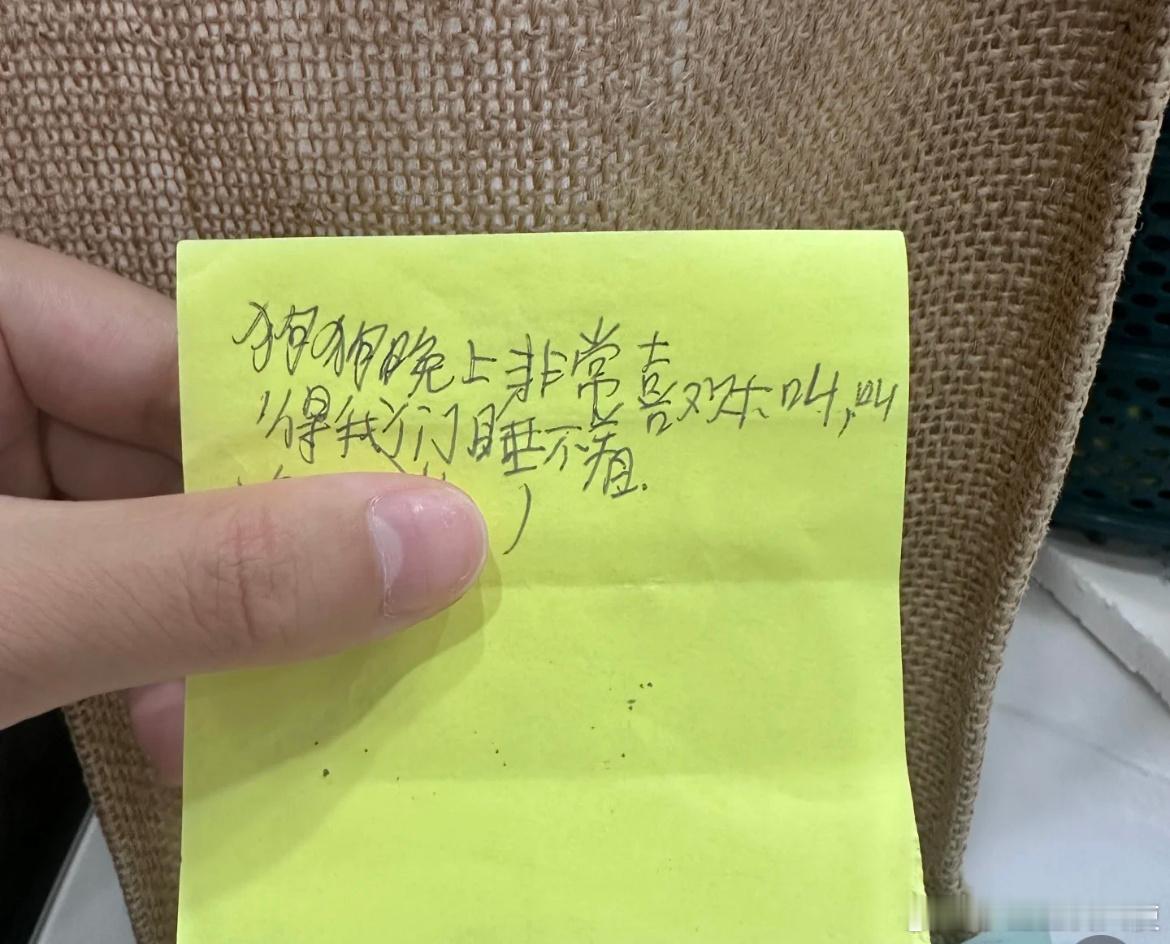 狗狗晚上非常喜欢叫,叫
得我们睡不着.